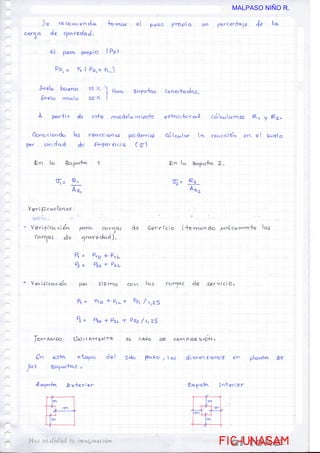 MALPASO NIÑO R.
Se recomienda tomar el peso propio un porcentaje de la
carga de gravedad.
EL peso propio (Pp)
Pp₁ = % ( PD₁ + PL₁ )
Suelo bueno 10 %
Suelo malo 20 %
Para zapatas conectadas.
A partir de este modelamiento estructural calculamos R₁ y R₂.
Conociendo las reacciones podemos calcular la reacción en el suelo
por unidad de superficie (σ)
En la zapata 1
En la zapata 2.
σ₁ = R₁ / Az₁
σ₂ = R₂ / Az₂
Verificaciones:
* Verificación para cargas de Servicio (tomando únicamente las
cargas de gravedad).
P₁ = P₁D + P₁L
P₂ = P₂D + P₂L
* Verificación por sismo con las cargas de servicio.
P₁ = P₁D + P₁L + PS₁ / 1,25
P₂ = P₂D + P₂L + PS₂ / 1,25
TOMANDO ÚNICAMENTE EL CASO DE COMPRESIÓN.
En esta etapa del 2do paso, las dimensiones en planta de
las zapatas.
Zapata Exterior
Zapata interior
Haz realidad tu imaginación
FIC-UNASAM